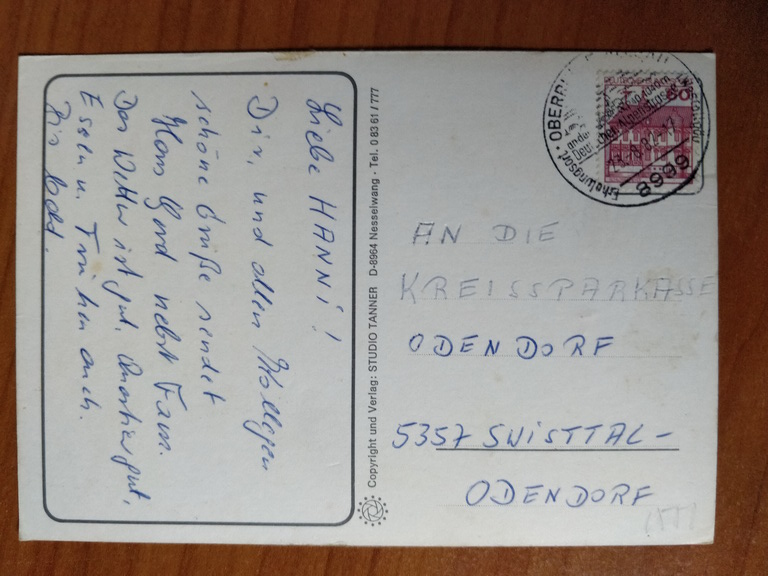 Liebe HANNi!
Dir, und allen Kollegen
schöne Grüße sendet
Hans Gerd nebst Fam.
Das Wetter ist gut, Quartier gut,
Essen u. Trinken auch.
Bis bald.
Copyright und Verlag: STUDIO TANNER D-8964 Nesselwang · Tel. 0 83 61 / 777
DEUTSCHE
60
Erholungsort · OBERR
8909
AN DIE
KREISSPARKASSE
ODENDORF
5357 SWISTTAL-
ODENDORF